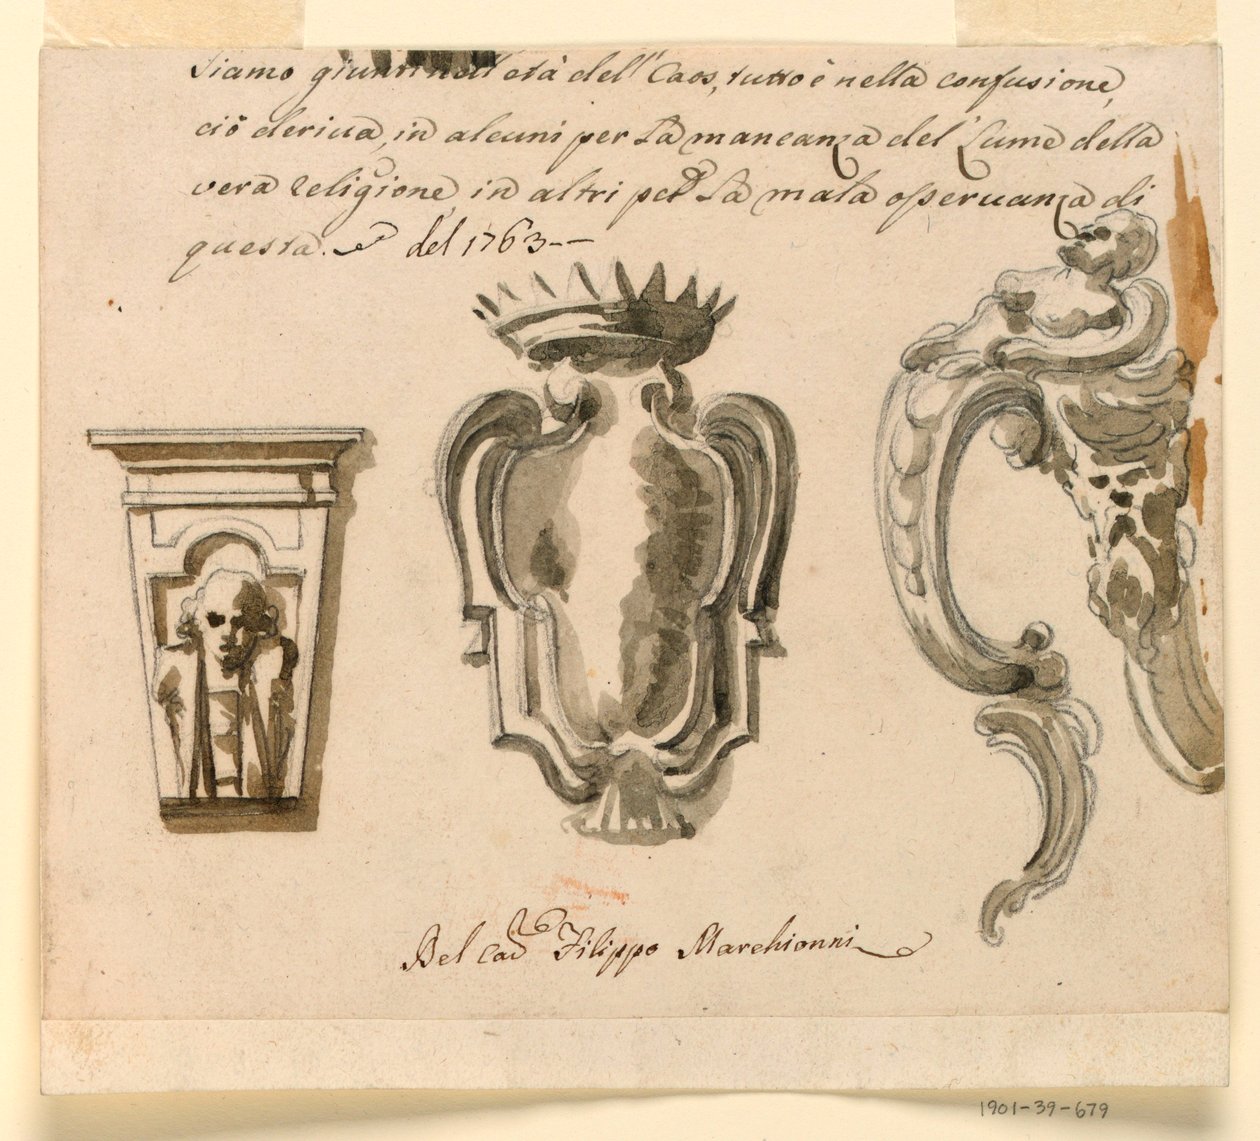 Siamo giunti nell'età dell' Caos, tutto è nella confusione,
ciò deriva, in alcuni per La mancanza del' Lume della
vera Religione, in altri per La mala osservanza di
questa. del 1763--
Del Filippo Marchionni
1901-39-679